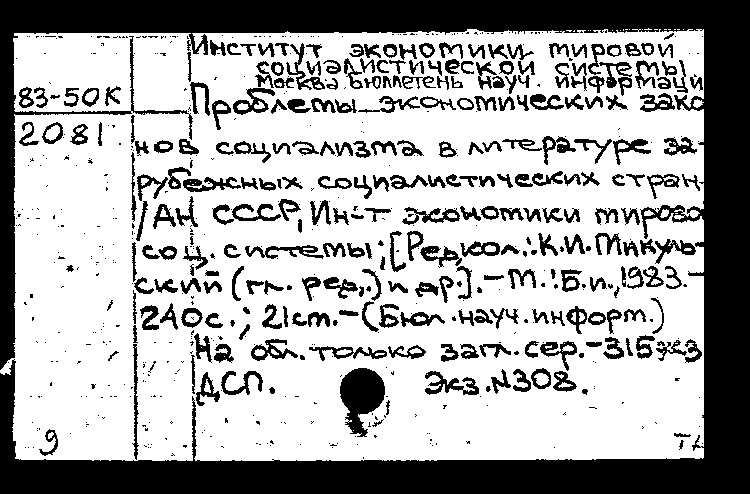 Институт экономики мировой
социалистической системы
Москва Бюллетень науч. информаци
83-50К
Проблемы экономических зако
2081
нов социализма в литературе за-
рубежных социалистических стран
/АН СССР, Ин-т экономики мирово
соц. системы; [Редкол.: К.И. Микуль-
ский (гл. ред.) и др.]. – М.: Б.и., 1983. –
240с.; 21см. – (Бюл. науч. информ.)
На обл. только загл. сер. – 315экз
ДСП. Экз. N308.
9